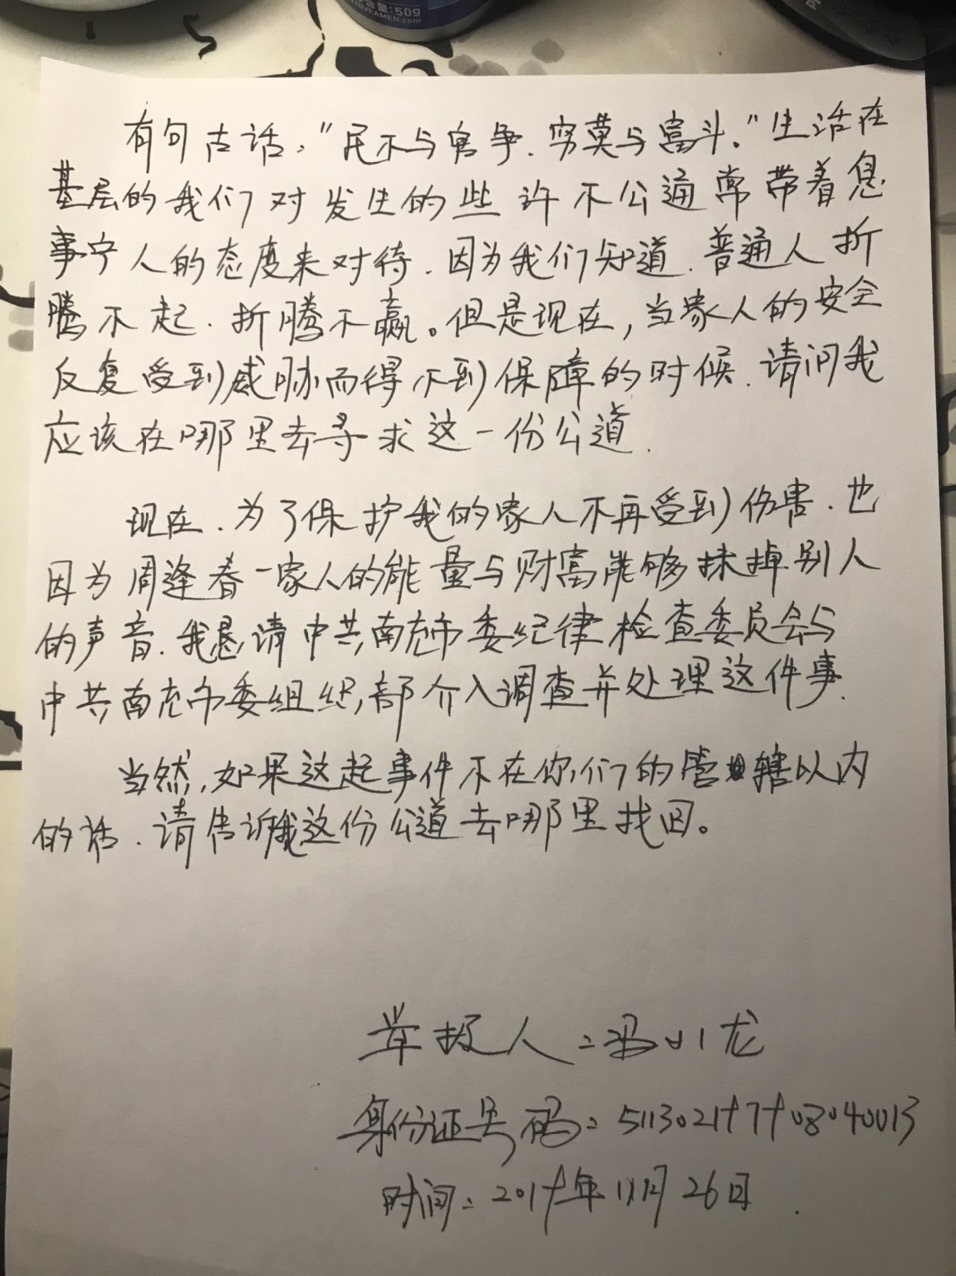 含量:50g
有句古话，"民不与官争、穷莫与富斗。"生活在
基层的我们对发生的些许不公通常带着息
事宁人的态度来对待．因为我们知道．普通人折
腾不起．折腾不赢。但是现在，当家人的安全
反复受到威胁而得不到保障的时候．请问我
应该在哪里去寻求这一份公道．
现在．为了保护我的家人不再受到伤害．也
因为周逢春一家人的能量与财富能够抹掉别人
的声音．我恳请中共南充市委纪律检查委员会与
中共南充市委组织部介入调查并处理这件事．
当然，如果这起事件不在你们的管辖以内
的话．请告诉我这份公道去哪里找回。
举报人：冯小龙
身份证号码：511302197908040013
时间：2019年11月26日